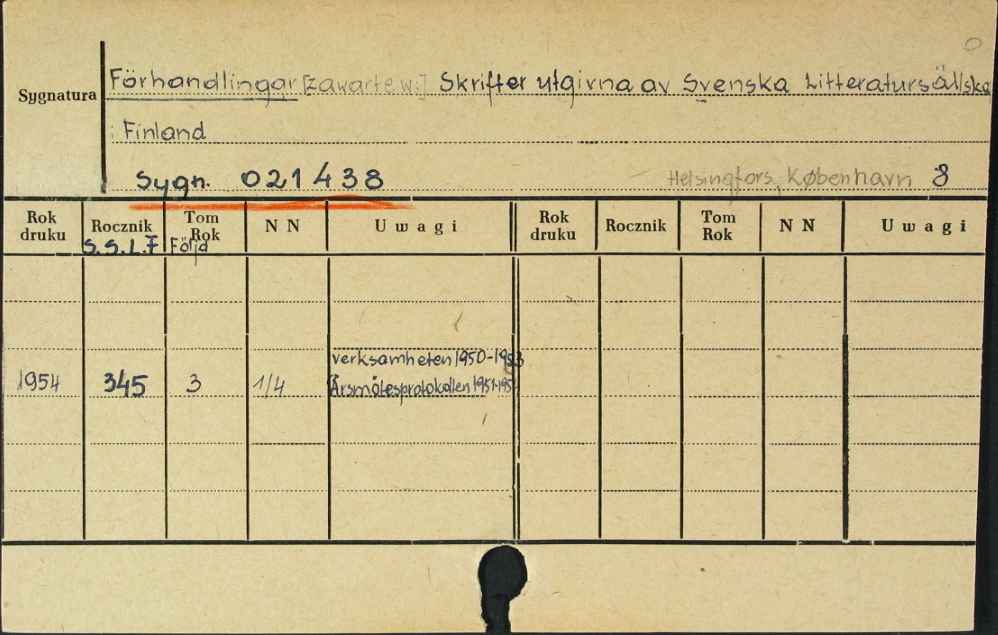 Sygnatura
Förhandlingar [zawarte w:] Skrifter utgivna av Svenska Litteratursällska
i Finland
Sygn. 021438 Helsingfors, København 8
Rok druku Rocznik Tom Rok NN Uwagi Rok druku Rocznik Tom Rok NN Uwagi
S.S.L.F Följd
verksamheten 1950-1953
1954 345 3 1/4 Årsmötesprotokollen 1951-195